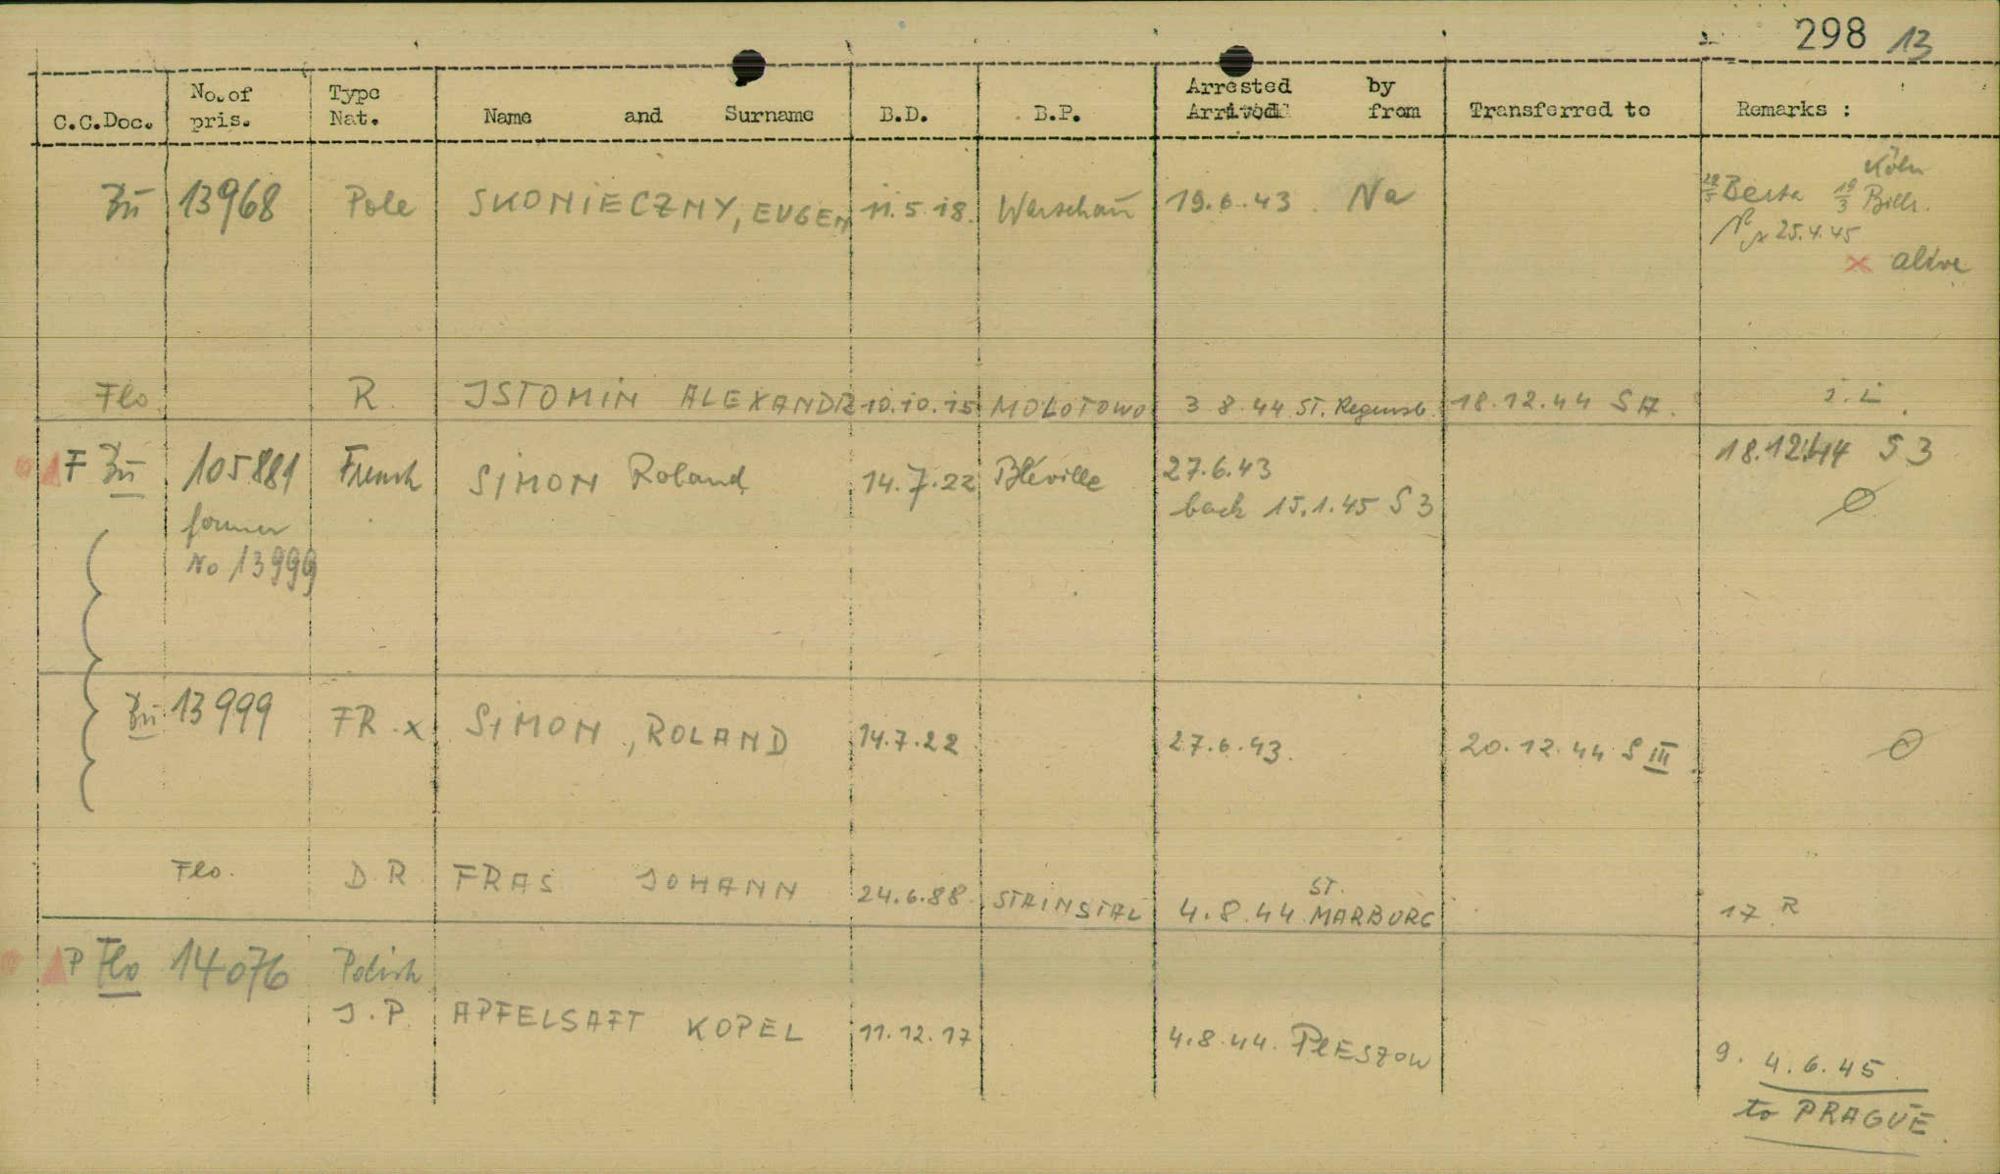 298 13
C.C.Doc. No. of pris. Type Nat. Name and Surname B.D. B.P. Arrested by Arrived from Transferred to Remarks :
Köln
Zü 13968 Pole SKONIECZNY, EUGEN 11.5.18. Warschau 19.6.43. Na Besta 19/3 Bill.
25.4.45
x alive
Flo. R. ISTOMIN ALEXANDR 10.10.15 MOLOTOWO 3 8.44 ST. Regensb. 18.12.44 SA. i.L.
F Zü 105881 French SIMON Roland 14.7.22 Bléville 27.6.43 18.12.44 S3
back 15.1.45 S3 Ø
former
No 13999
Zü 13999 FR. x SIMON, ROLAND 14.7.22 27.6.43. 20.12.44 S III Ø
Flo. D.R FRAS JOHANN 24.6.88. STAINSTAL 4.8.44 ST. MARBURG 17 R
P Flo 14076 Polish
J.P. APFELSAFT KOPEL 11.12.17 4.8.44. PlESZOW
9. 4.6.45.
to PRAGUE.